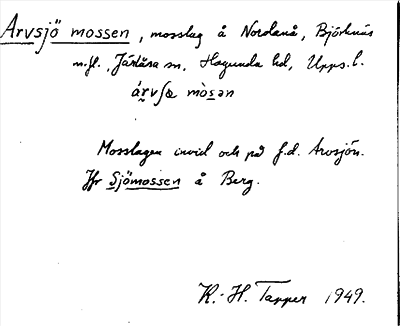 Arvsjö mossen, mosslag å Nordanå, Björknäs
m.fl., Järlåsa sn, Hagunda hd, Upps. l.
árvʃœ mòsən
Mosslagen invid och på f.d. Arvsjön.
Jfr Sjömossen å Berg.
K.-H. Tapper 1949.